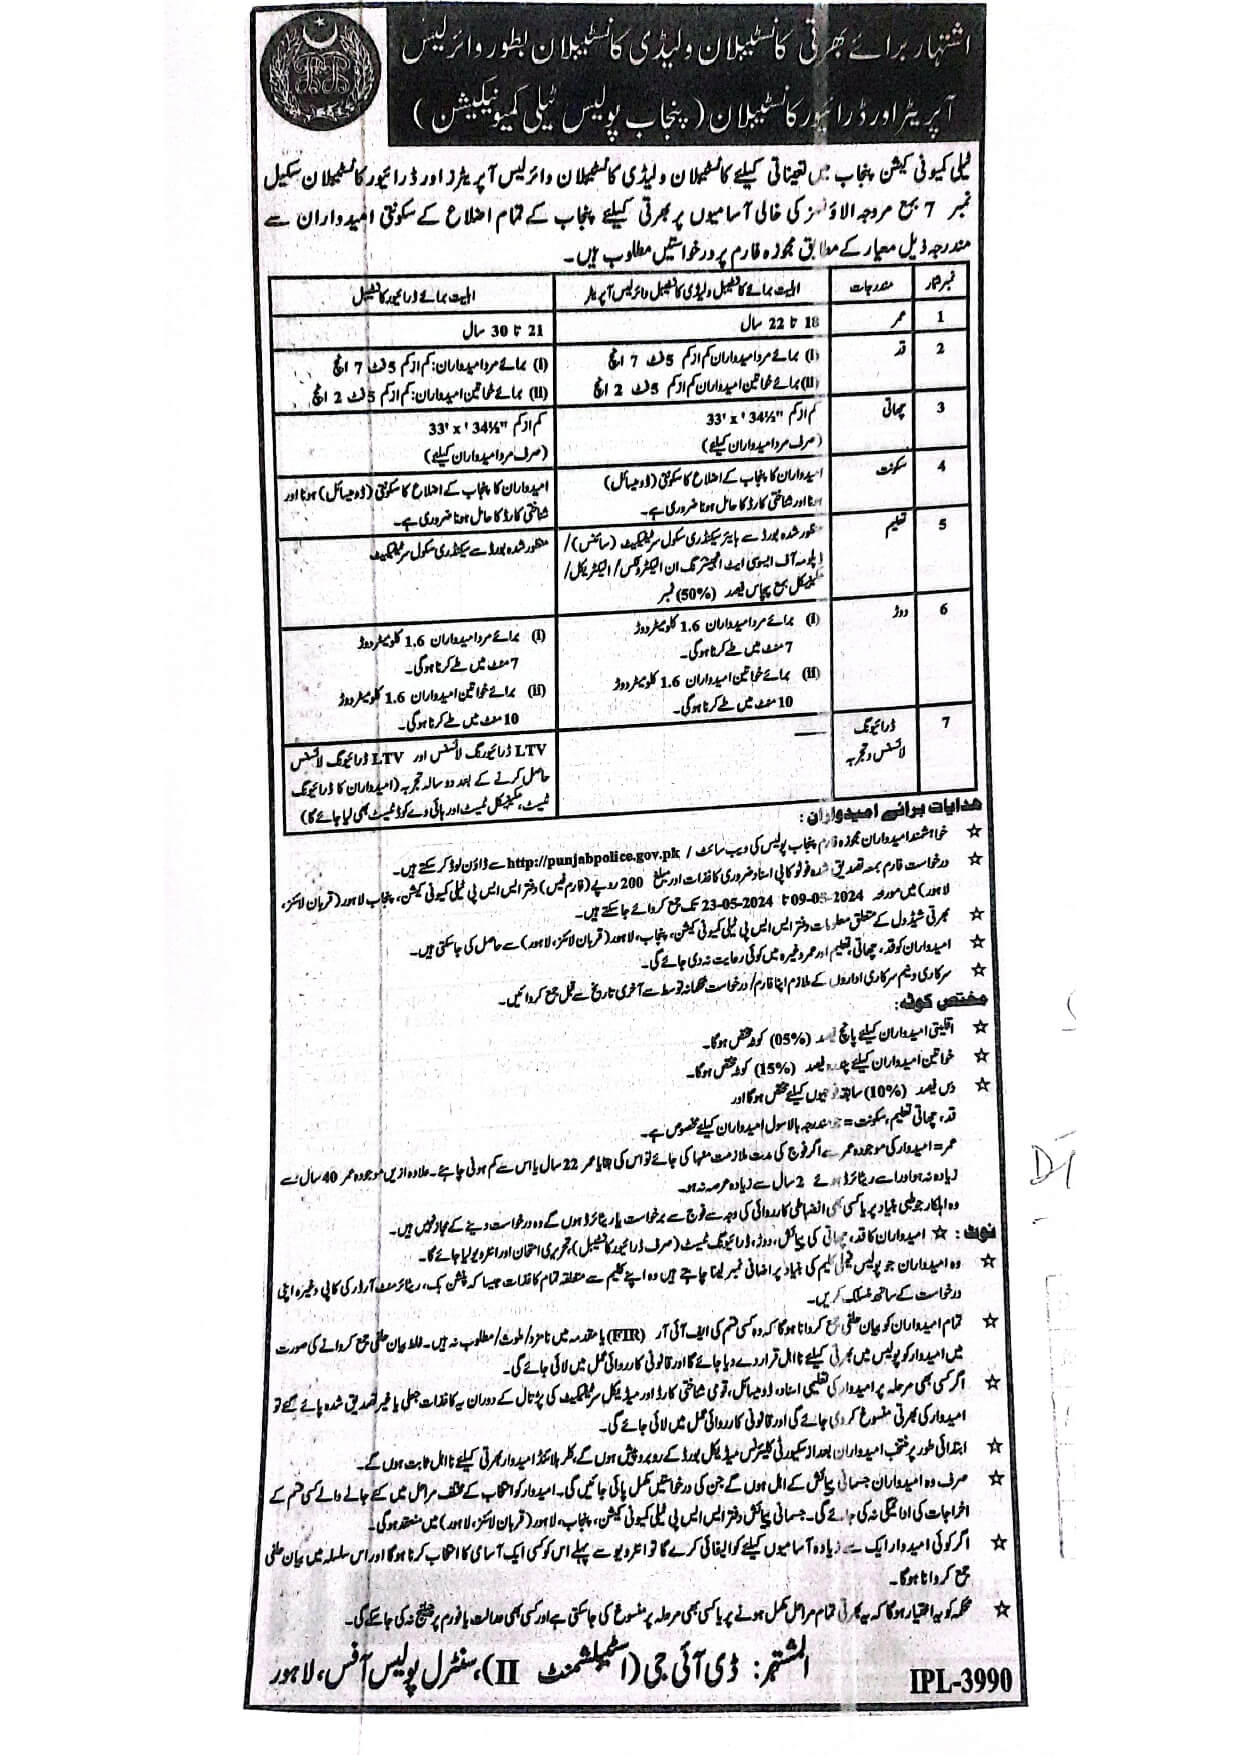 اشتہار برائے بھرتی کانسٹیبلان و لیڈی کانسٹیبلان بطور وائرلیس
آپریٹر اور ڈرائیور کانسٹیبلان (پنجاب پولیس ٹیلی کمیونیکیشن)
ٹیلی کمیونی کیشن پنجاب میں تعیناتی کیلئے کانسٹیبلان و لیڈی کانسٹیبلان وائرلیس آپریٹرز اور ڈرائیور کانسٹیبلان سکیل
نمبر 7 بمع مروجہ الاؤنسز کی خالی آسامیوں پر بھرتی کیلئے پنجاب کے تمام اضلاع کے سکونتی امیدواران سے
مندرجہ ذیل معیار کے مطابق مجوزہ فارم پر درخواستیں مطلوب ہیں۔
نمبر شمار مندرجات اہلیت برائے کانسٹیبل و لیڈی کانسٹیبل وائرلیس آپریٹر اہلیت برائے ڈرائیور کانسٹیبل
1 عمر 18 تا 22 سال 21 تا 30 سال
2 قد (i) برائے مرد امیدواران کم از کم 5 فٹ 7 انچ (i) برائے مرد امیدواران: کم از کم 5 فٹ 7 انچ
(ii) برائے خواتین امیدواران کم از کم 5 فٹ 2 انچ (ii) برائے خواتین امیدواران: کم از کم 5 فٹ 2 انچ
3 چھاتی کم از کم "33' x ' 34½ کم از کم "33' x ' 34½
(صرف مرد امیدواران کیلئے) (صرف مرد امیدواران کیلئے)
4 سکونت امیدواران کا پنجاب کے اضلاع کا سکونتی (ڈومیسائل) امیدواران کا پنجاب کے اضلاع کا سکونتی (ڈومیسائل) ہونا اور
ہونا اور شناختی کارڈ کا حامل ہونا ضروری ہے۔ شناختی کارڈ کا حامل ہونا ضروری ہے۔
5 تعلیم منظور شدہ بورڈ سے ہائیر سیکنڈری سکول سرٹیفکیٹ (سائنس)/ منظور شدہ بورڈ سے سیکنڈری سکول سرٹیفکیٹ
ڈپلومہ آف ایسوسی ایٹ انجینئرنگ ان الیکٹرونکس/الیکٹریکل/
مکینیکل بمع پچاس فیصد (50%) نمبر
6 دوڑ (i) برائے مرد امیدواران 1.6 کلومیٹر دوڑ (i) برائے مرد امیدواران 1.6 کلومیٹر دوڑ
7 منٹ میں طے کرنا ہوگی۔ 7 منٹ میں طے کرنا ہوگی۔
(ii) برائے خواتین امیدواران 1.6 کلومیٹر دوڑ (ii) برائے خواتین امیدواران 1.6 کلومیٹر دوڑ
10 منٹ میں طے کرنا ہوگی۔ 10 منٹ میں طے کرنا ہوگی۔
7 ڈرائیونگ لائسنس و تجربہ — LTV ڈرائیونگ لائسنس اور LTV ڈرائیونگ لائسنس
حاصل کرنے کے بعد دو سالہ تجربہ (امیدواران کا ڈرائیونگ
ٹیسٹ، مکینیکل ٹیسٹ اور ہائی وے کوڈ ٹیسٹ بھی لیا جائے گا)
ہدایات برائے امیدواران:
☆ خواہشمند امیدواران مجوزہ فارم پنجاب پولیس کی ویب سائٹ / http://punjabpolice.gov.pk سے ڈاؤن لوڈ کر سکتے ہیں۔
☆ درخواست فارم بمعہ تصدیق شدہ فوٹو کاپی اسناد و ضروری کاغذات اور مبلغ 200 روپے (فارم فیس) دفتر ایس ایس پی ٹیلی کمیونی کیشن، پنجاب لاہور (قربان لائنز،
لاہور) میں مورخہ 09-05-2024 تا 23-05-2024 تک جمع کروائے جا سکتے ہیں۔
☆ بھرتی شیڈول کے متعلق معلومات دفتر ایس ایس پی ٹیلی کمیونی کیشن، پنجاب، لاہور (قربان لائنز، لاہور) سے حاصل کی جاسکتی ہیں۔
☆ امیدواران کو قد، چھاتی، تعلیم اور عمر وغیرہ میں کوئی رعایت نہ دی جائے گی۔
☆ سرکاری و نیم سرکاری اداروں کے ملازم اپنا فارم/درخواست محکمانہ توسط سے آخری تاریخ سے قبل جمع کروائیں۔
مختص کوٹہ:
☆ اقلیتی امیدواران کیلئے پانچ فیصد (05%) کوٹہ مختص ہوگا۔
☆ خواتین امیدواران کیلئے پندرہ فیصد (15%) کوٹہ مختص ہوگا۔
☆ دس فیصد (10%) سابقہ فوجیوں کیلئے مختص ہوگا اور
قد، چھاتی، تعلیم، سکونت = جو مندرجہ بالا سول امیدواران کیلئے مخصوص ہے۔
عمر = امیدوار کی موجودہ عمر سے اگر فوج کی مدت ملازمت منہا کی جائے تو اس کی بقایا عمر 22 سال یا اس سے کم ہونی چاہیے۔ علاوہ ازیں موجودہ عمر 40 سال سے
زیادہ نہ ہو اور اسے ریٹائرڈ ہوئے 2 سال سے زیادہ عرصہ نہ ہو۔
وہ اہلکار جو طبی بنیاد پر یا کسی بھی انضباطی کارروائی کی وجہ سے فوج سے برخواست یا ریٹائرڈ ہوں گے وہ درخواست دینے کے مجاز نہیں ہیں۔
نوٹ: ☆ امیدواران کا قد، چھاتی کی پیمائش، دوڑ، ڈرائیونگ ٹیسٹ (صرف ڈرائیور کانسٹیبل)، تحریری امتحان اور انٹرویو لیا جائے گا۔
☆ وہ امیدواران جو پولیس فیملی کلیم کی بنیاد پر اضافی نمبر لینا چاہتے ہیں وہ اپنے کلیم سے متعلقہ تمام کاغذات جیسا کہ پنشن بک، ریٹائرمنٹ آرڈر کی کاپی وغیرہ اپنی
درخواست کے ساتھ منسلک کریں۔
☆ تمام امیدواران کو بیان حلفی جمع کروانا ہوگا کہ وہ کسی قسم کی ایف آئی آر (FIR) یا مقدمہ میں نامزد/ملوث/مطلوب نہ ہیں۔ غلط بیان حلفی جمع کروانے کی صورت
میں امیدوار کو پولیس میں بھرتی کیلئے نااہل قرار دے دیا جائے گا اور قانونی کارروائی عمل میں لائی جائے گی۔
☆ اگر کسی بھی مرحلہ پر امیدوار کی تعلیمی اسناد، ڈومیسائل، قومی شناختی کارڈ اور میڈیکل سرٹیفکیٹ کی پڑتال کے دوران یہ کاغذات جعلی یا غیر تصدیق شدہ پائے گئے تو
امیدوار کی بھرتی منسوخ کر دی جائے گی اور قانونی کارروائی عمل میں لائی جائے گی۔
☆ ابتدائی طور پر منتخب امیدواران بعد از سکیورٹی کلیئرنس میڈیکل بورڈ کے روبرو پیش ہوں گے، کلر بلائنڈ امیدوار بھرتی کیلئے نااہل ثابت ہوں گے۔
☆ صرف وہ امیدواران جسمانی پیمائش کے اہل ہوں گے جن کی درخواستیں مکمل پائی جائیں گی۔ امیدوار کو انتخاب کے مختلف مراحل میں کئے جانے والے کسی قسم کے
اخراجات کی ادائیگی نہ کی جائے گی۔ جسمانی پیمائش دفتر ایس ایس پی ٹیلی کمیونی کیشن، پنجاب، لاہور (قربان لائنز، لاہور) میں منعقد ہوگی۔
☆ اگر کوئی امیدوار ایک سے زیادہ آسامیوں کیلئے کوالیفائی کرے گا تو انٹرویو سے پہلے اس کو کسی ایک آسامی کا انتخاب کرنا ہوگا اور اس سلسلہ میں بیان حلفی
جمع کروانا ہوگا۔
☆ محکمہ کو یہ اختیار ہوگا کہ یہ بھرتی تمام مراحل مکمل ہونے پر یا کسی بھی مرحلہ پر منسوخ کی جاسکتی ہے اور کسی بھی عدالت یا فورم پر چیلنج نہ کی جا سکے گی۔
المشتہر: ڈی آئی جی (اسٹیبلشمنٹ II)، سنٹرل پولیس آفس، لاہور
IPL-3990